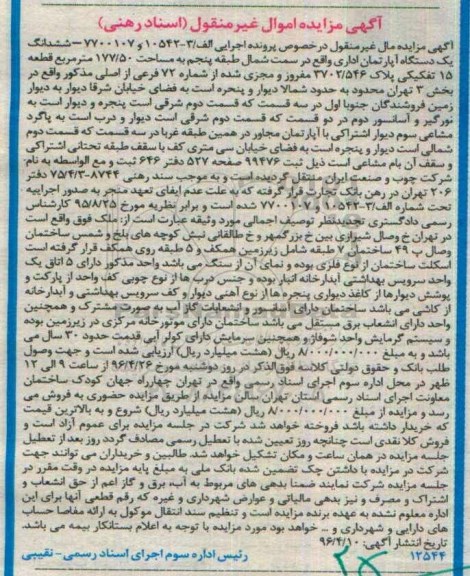 آگهی مزایده اموال غیر منقول (اسناد رهنی)
آگهی مزایده مال غیرمنقول درخصوص پرونده اجرایی الف/۳-۱۰۵۴۲ و ۷۷۰۰۱۰۷ -ششدانگ
یک دستگاه آپارتمان اداری واقع در سمت شمال طبقه پنجم به مساحت ۱۷۷/۵۰ مترمربع قطعه
۱۵ تفکیکی پلاک ۳۷۰۲/۵۴۶ مفروز و مجزی شده از شماره ۷۲ فرعی از اصلی مذکور واقع در
بخش ۳ تهران محدود به حدود شمالا دیوار و پنجره است به فضای خیابان شرقا دیوار به دیوار
زمین فروشندگان جنوبا اول در سه قسمت که قسمت دوم شرقی است پنجره و دیوار است به
نورگیر و آسانسور دوم در دو قسمت که قسمت دوم شرقی است دیوار و درب است به پاگرد
مشاعی سوم دیوار اشتراکی با آپارتمان مجاور در همین طبقه غربا در سه قسمت که قسمت دوم
شمالی است دیوار و پنجره است به فضای خیابان سی متری کف با سقف طبقه تحتانی اشتراکی
و سقف آن بام مشاعی است ذیل ثبت ۹۹۴۷۶ صفحه ۵۲۷ دفتر ۶۴۶ ثبت و مع الواسطه به نام:
شرکت چوب و صنعت ایران منتقل گردیده است و به موجب سند رهنی ۸۷۴۴-۷۵/۴/۳ دفتر
۲۰۶ تهران در رهن بانک تجارت قرار گرفته که به علت عدم ایفای تعهد منجر به صدور اجراییه
تحت شماره الف/۳-۱۰۵۴۲ و ۷۷۰۰۱۰۷ شده است و برابر نظریه مورخ ۹۵/۸/۲۵ کارشناس
رسمی دادگستری تجدیدنظر توصیف اجمالی مورد وثیقه عبارت است از: ملک فوق واقع است
در تهران خ وصال شیرازی بین خ بزرگمهر و خ طالقانی نبش کوچه های بلخ و شمس ساختمان
وصال پ ۴۹ ساختمان ۷ طبقه شامل زیرزمین همکف و ۵ طبقه روی همکف قرار گرفته است
اسکلت ساختمان از نوع فلزی بوده و نمای آن از سنگ می باشد واحد مذکور دارای ۵ اتاق یک
واحد سرویس بهداشتی آبدارخانه انبار بوده و جنس درب ها از نوع چوبی کف واحد از پارکت و
پوشش دیوارها از کاغذ دیواری پنجره ها از نوع آهنی دیوار و کف سرویس بهداشتی و آبدارخانه
از کاشی می باشد ساختمان دارای آسانسور و انشعابات گاز آب به صورت مشترک و همچنین
واحد دارای انشعاب برق مستقل می باشد ساختمان دارای موتورخانه مرکزی در زیرزمین بوده
و سیستم گرمایش واحد شوفاژ و همچنین سرمایش دارای کولر آبی قدمت حدود ۳۰ سال می
باشد و به مبلغ ۸/۰۰۰/۰۰۰/۰۰۰ ریال (هشت میلیارد ریال) ارزیابی شده است و جهت وصول
طلب بانک و حقوق دولتی کلاسه فوق الذکر در روز دوشنبه مورخ ۹۶/۴/۲۶ از ساعت ۹ الی ۱۲
ظهر در محل اداره سوم اجرای اسناد رسمی واقع در تهران چهارراه جهان کودک ساختمان
معاونت اجرای اسناد رسمی استان تهران سالن مزایده از طریق مزایده حضوری به فروش می
رسد و مزایده از مبلغ ۸/۰۰۰/۰۰۰/۰۰۰ ریال (هشت میلیارد ریال) شروع و به بالاترین قیمت
که خریدار داشته باشد فروخته خواهد شد شرکت در جلسه مزایده برای عموم آزاد است و
فروش کلا نقدی است چنانچه روز تعیین شده با تعطیل رسمی مصادف گردد روز بعد از تعطیل
جلسه مزایده در همان ساعت و مکان تشکیل خواهد شد. طالبین و خریداران می توانند جهت
شرکت در مزایده با داشتن چک تضمین شده بانک ملی به مبلغ پایه مزایده در وقت مقرر در
جلسه مزایده شرکت نمایند ضمنا بدهی های مربوط به آب، برق و گاز اعم از حق انشعاب و
اشتراک و مصرف و نیز بدهی مالیاتی و عوارض شهرداری و غیره که رقم قطعی آنها برای این
اداره معلوم نشده به عهده برنده مزایده است و تنظیم سند انتقال موکول به ارائه مفاصا حساب
های دارایی و شهرداری و ... خواهد بود مورد مزایده با توجه به اعلام بستانکار بیمه می باشد.
تاریخ انتشار آگهی: ۹۶/۴/۱۰
۱۲۵۴۴ رئیس اداره سوم اجرای اسناد رسمی- نقیبی